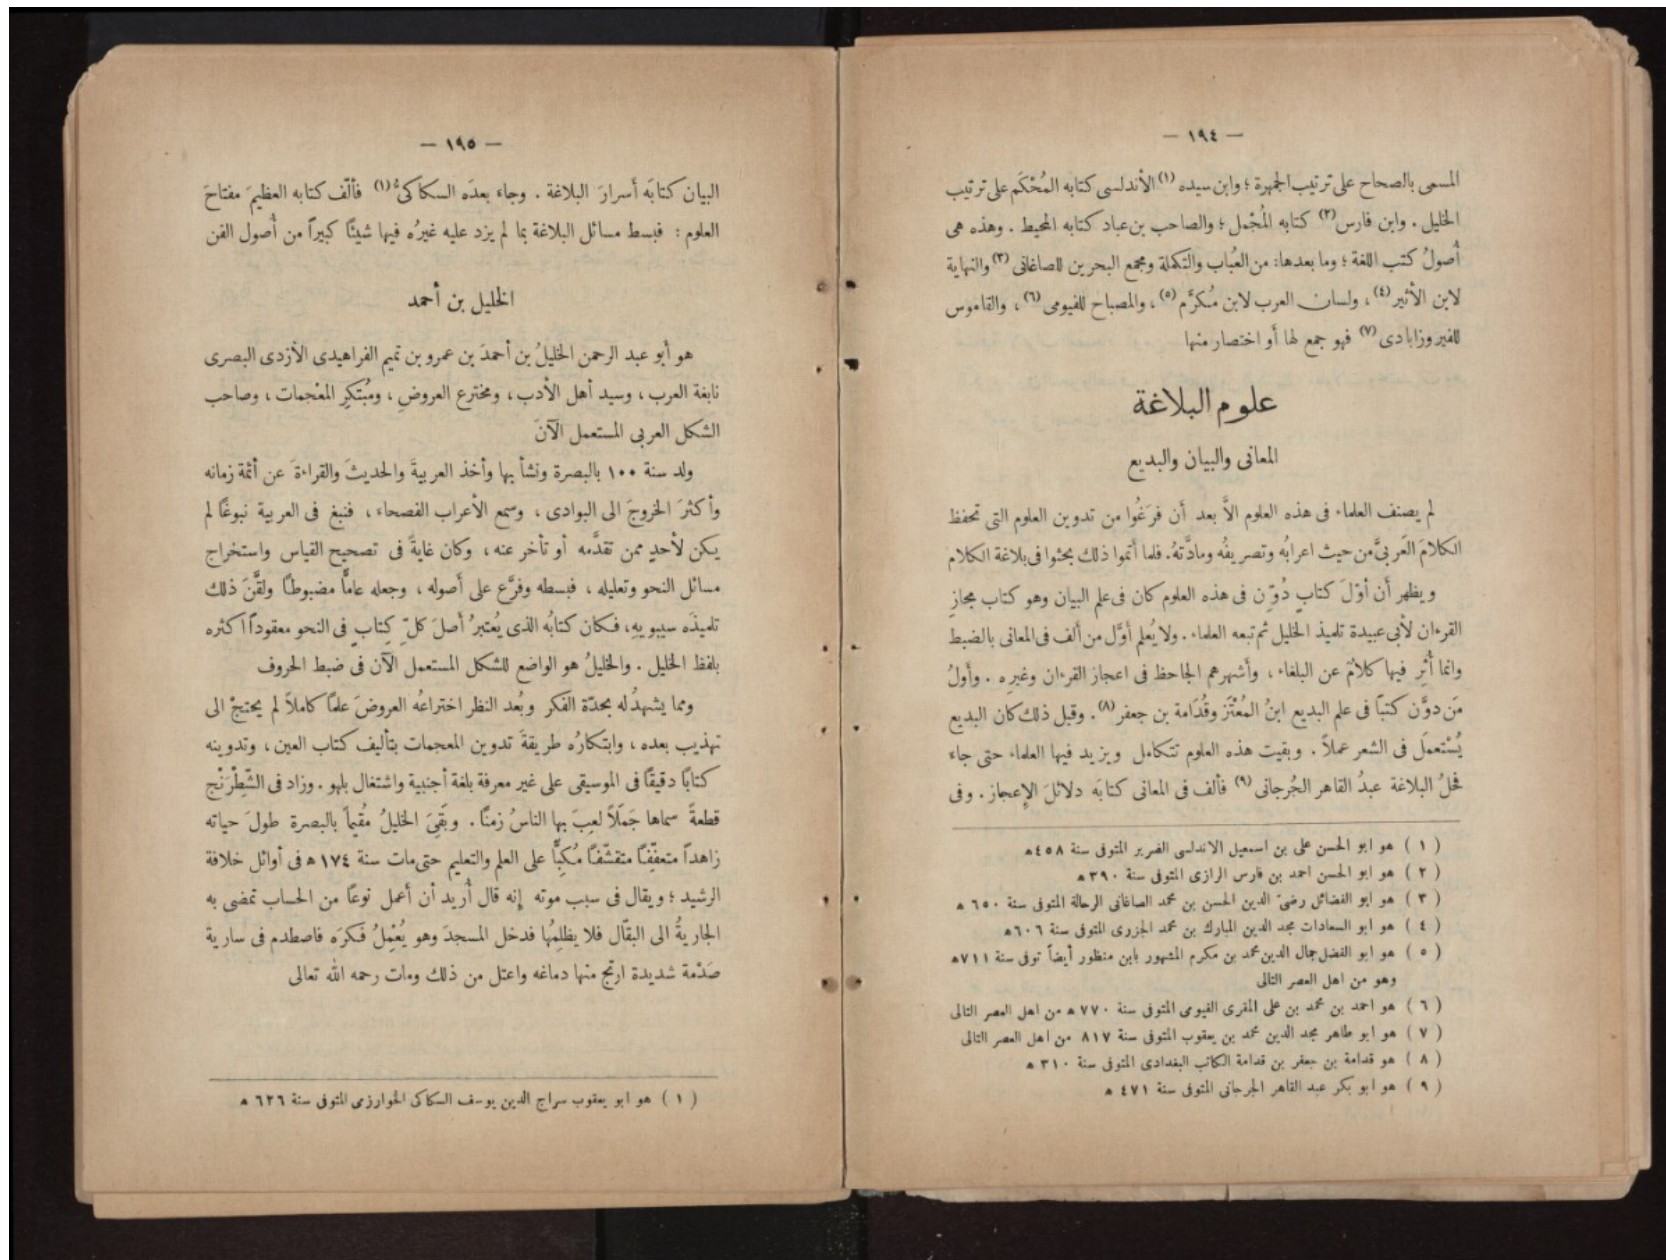 — ١٩٤ —
المسمى بالصحاح على ترتيب الجمهرة ؛ وابن سيده (١) الأندلسى كتابه المُحْكَم على ترتيب
الخليل . وابن فارس (٢) كتابه المُجْمل ؛ والصاحب بن عباد كتابه المحيط . وهذه هى
أصولُ كتب اللغة ؛ وما بعدها: من العُباب والتكملة ومجمع البحرين للصاغانى (٣) والنهاية
لابن الأثير (٤) ، ولسان العرب لابن مُكرَّم (٥) ، والمصباح للفيومى (٦) ، والقاموس
للفيروزابادى (٧) فهو جمع لها أو اختصار منها
علوم البلاغة
المعانى والبيان والبديع
لم يصنف العلماء فى هذه العلوم الاَّ بعد أَن فرَغُوا من تدوين العلوم التى تحفظ
الكلامَ العَربىَّ من حيث اعرابُه وتصريفُه ومادَّتهُ. فلما أتموا ذلك بحثوا فى بلاغة الكلام
ويظهر أن أوّلَ كتابٍ دُوّن فى هذه العلوم كان فى علم البيان وهو كتاب مجازِ
القرءان لأبى عبيدة تلميذ الخليل ثم تبعه العلماء . ولا يُعلم أوَّل من ألف فى المعانى بالضبط
وانما أُثِر فيها كلامٌ عن البلغاء ، وأشهرهم الجاحظ فى اعجاز القرءان وغيرِه . وأولُ
مَن دوَّن كتباً فى علم البديع ابنُ المُعْتَز وقُدَامة بن جعفر (٨) . وقبل ذلك كان البديع
يُسْتعملَ فى الشعر عملاً . وبقيت هذه العلوم تتكامل ويزيد فيها العلماء حتى جاء
فحلُ البلاغة عبدُ القاهر الجُرجانى (٩) فألف فى المعانى كتابَه دلائلَ الإعجاز . وفى
( ١ ) هو ابو الحسن على بن اسمعيل الاندلسى الضرير المتوفى سنة ٤٥٨ﻫ
( ٢ ) هو ابو الحسن احمد بن فارس الرازى المتوفى سنة ٣٩٠ﻫ
( ٣ ) هو ابو الفضائل رضىّ الدين الحسن بن محمد الصاغانى الرحالة المتوفى سنة ٦٥٠ ﻫ
( ٤ ) هو ابو السعادات مجد الدين المبارك بن محمد الجزرى المتوفى سنة ٦٠٦ﻫ
( ٥ ) هو ابو الفضل جمال الدين محمد بن مكرم المشهور بابن منظور أيضاً توفى سنة ٧١١ﻫ
وهو من اهل العصر التالى
( ٦ ) هو احمد بن محمد بن على المقرى الفيومى المتوفى سنة ٧٧٠ ﻫ من اهل العصر التالى
( ٧ ) هو ابو طاهر مجد الدين محمد بن يعقوب المتوفى سنة ٨١٧ من اهل العصر التالى
( ٨ ) هو قدامة بن جعفر بن قدامة الكاتب البغدادى المتوفى سنة ٣١٠ ﻫ
( ٩ ) هو ابو بكر عبد القاهر الجرجانى المتوفى سنة ٤٧١ ﻫ
— ١٩٥ —
البيان كتابَه أَسرارَ البلاغة . وجاء بعدَه السكاكىُّ (١) فألّف كتابه العظيمَ مفتاحَ
العلوم : فبسط مسائل البلاغة بما لم يزد عليه غيرُه فيها شيئاً كبيراً من أُصول الفن
الخليل بن أحمد
هو أبو عبد الرحمن الخليلُ بن أحمدَ بن عمرو بن تميم الفراهيدى الأزدى البصرى
نابغة العرب ، وسيد أهل الأدب ، ومخترع العروضِ ، ومُبْتكِرِ المعْجمات ، وصاحب
الشكل العربى المستعمل الآنَ
ولد سنة ١٠٠ بالبصرة ونشأ بها وأخذ العربيةَ والحديثَ والقراءةَ عن أئمة زمانه
وأكثرَ الخروجَ الى البوادى ، وسمع الأعراب الفصحاء ، فنبغ فى العربية نبوغًا لم
يكن لأحدٍ ممن تقدَّمه أو تأخر عنه ، وكان غايةً فى تصحيح القياس واستخراج
مسائل النحو وتعليله ، فبسطه وفرَّع على أصوله ، وجعله عامًّا مضبوطًا ولقَّنَ ذلك
تلميذَه سيبويهِ، فكان كتابُه الذى يُعتبرُ أصلَ كلّ كِتابٍ فى النحو معقوداً اكثره
بلفظ الخليل . والخليلُ هو الواضع للشكل المستعمل الآن فى ضبط الحروف
ومما يشهدُله بحدّة الفكر وبُعد النظر اختراعُه العروضَ علمًا كاملاً لم يحتجْ الى
تهذيب بعده ، وابتكارُه طريقةَ تدوين المعجمات بتأليف كتاب العين ، وتدوينه
كتابًا دقيقًا فى الموسيقى على غير معرفة بلغة أجنبية واشتغال بلهو . وزاد فى الشِّطْرَنْج
قطعةً سماها جَمَلاً لعِبَ بها الناسُ زمنًا . وبَقِىَ الخليلُ مُقيماً بالبصرة طولَ حياته
زاهداً متعفِّفًا متقشّفًا مُكِبًّا على العلم والتعليم حتى مات سنة ١٧٤ ﻫ فى أوائل خلافة
الرشيد ؛ ويقال فى سبب موته إنه قال أُريد أن أعمل نوعًا من الحساب تمضى به
الجاريةُ الى البقّال فلا يظلِمُها فدخل المسجدَ وهو يُعْمِلُ فكرَه فاصطدم فى سارية
صَدْمة شديدة ارتج منها دماغه واعتل من ذلك ومات رحمه الله تعالى
( ١ ) هو ابو يعقوب سراج الدين يوسف السكاكى الخوارزمى المتوفى سنة ٦٢٦ ﻫ